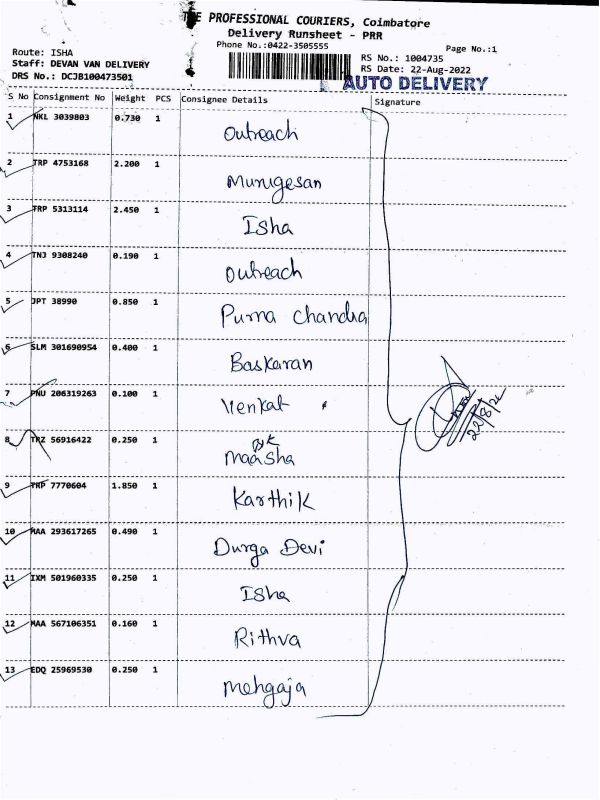 THE PROFESSIONAL COURIERS, Coimbatore
Delivery Runsheet - PRR
Phone No.:0422-3505555
Page No.:1
Route: ISHA
Staff: DEVAN VAN DELIVERY
DRS No.: DCJB100473501
RS No.: 1004735
RS Date: 22-Aug-2022
AUTO DELIVERY
S No Consignment No Weight PCS Consignee Details Signature
1 NKL 3039803 0.730 1 Outreach
2 TRP 4753168 2.200 1 Murugesan
3 TRP 5313114 2.450 1 Isha
4 TNJ 9308240 0.190 1 Outreach
5 JPT 38990 0.850 1 Purna Chandra
6 SLM 301690954 0.400 1 Baskaran
7 PNU 206319263 0.100 1 Venkat
8 TRZ 56916422 0.250 1
9 TRP 7770604 1.850 1 Karthik
10 MAA 293617265 0.490 1 Durga Devi
11 IXM 501960335 0.250 1 Isha
12 MAA 567106351 0.160 1 Rithva
13 EDQ 25969530 0.250 1 Mehgaja
22/8/22